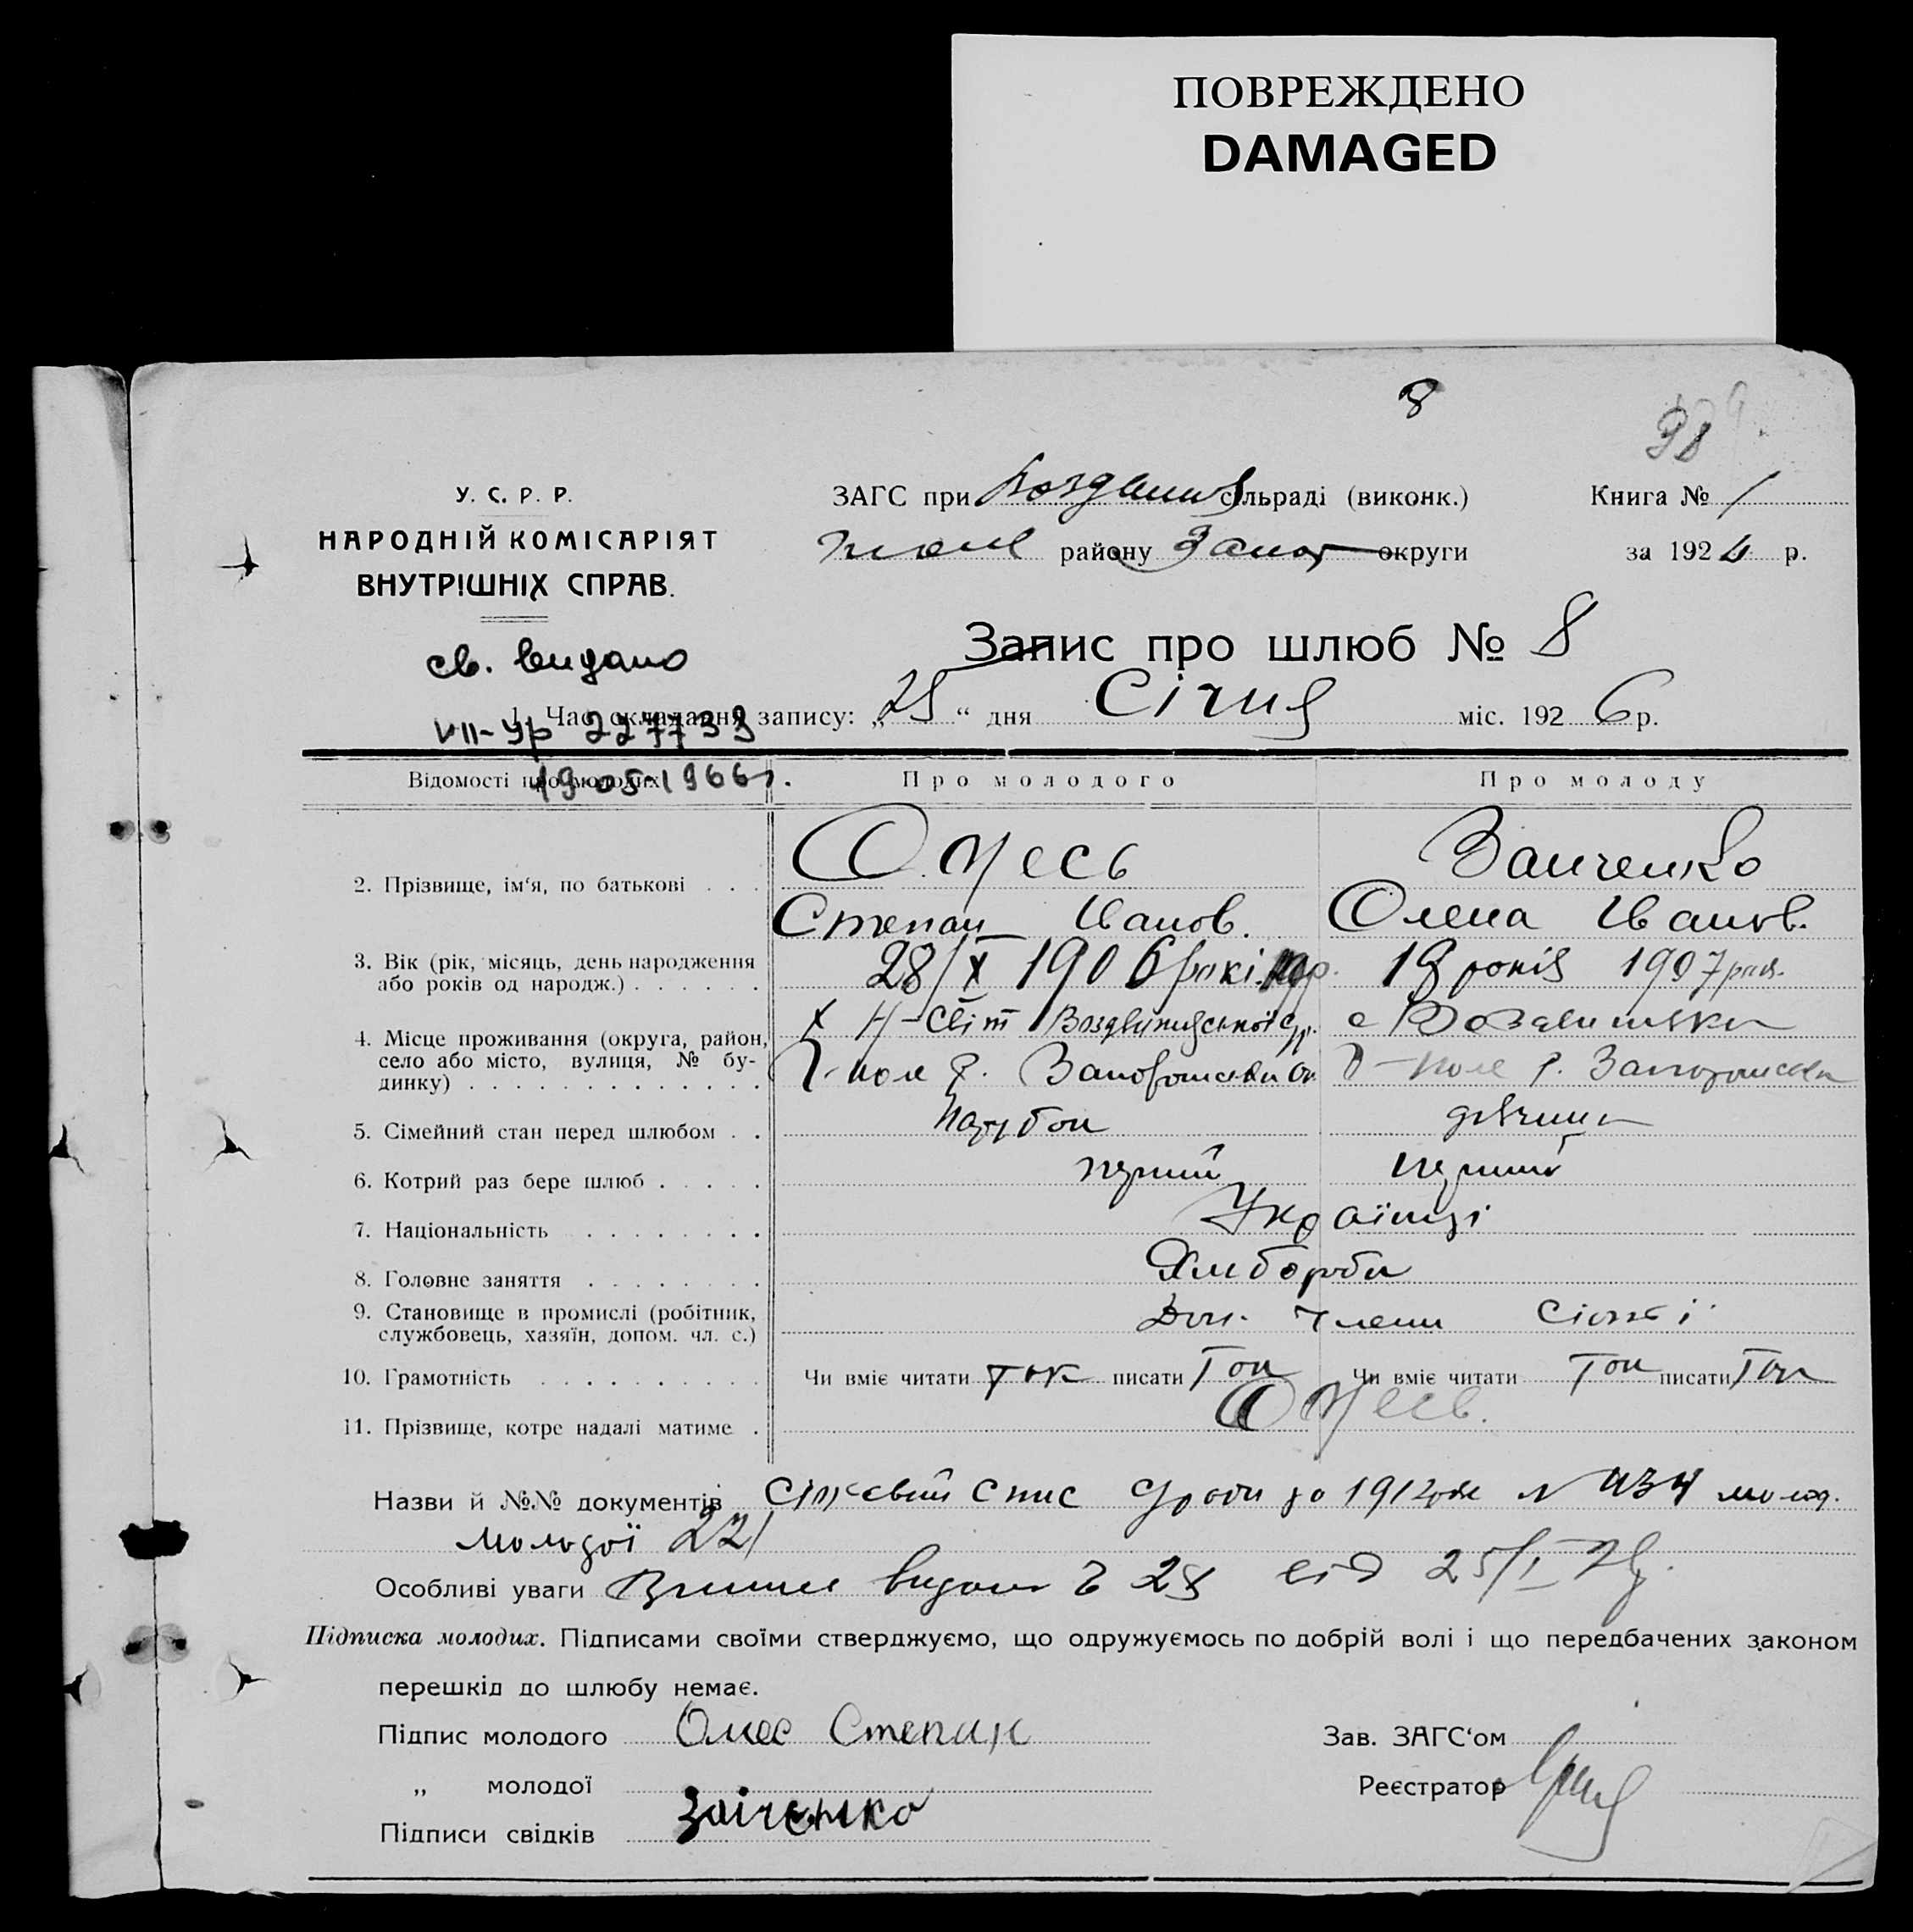 ПОВРЕЖДЕНО
DAMAGED
8
98
У. С. Р. Р.
НАРОДНІЙ КОМІСАРІЯТ
ВНУТРІШНІХ СПРАВ.
ЗАГС при сільраді (виконк.)
Книга № 1
району Запор округи
за 1926 р.
св. видано
VII-УР 227739
19 05 1966 г.
Запис про шлюб № 8
1. Час складання запису: „25“ дня Січня міс. 1926 р.
Відомості про молодих
Про молодого
Про молоду
2. Прізвище, ім‘я, по батькові . . .
Олесь
Заиченко
Степан Іванов.
Олена Іванов.
3. Вік (рік, місяць, день народження
або років од народж.) . . . . . .
28/X 1906
18 років 1907
4. Місце проживання (округа, район,
село або місто, вулиця, № бу-
динку) . . . . . . . . . . . . .
х Н-Світ Воздвижевської
с Воздвижевки
Г-поле р. Запорожськи Ок
Г-поле р. Запорожськи
5. Сімейний стан перед шлюбом . .
Парубок
дівчина
6. Котрий раз бере шлюб . . . . .
перший
перший
7. Національність . . . . . . . .
Українці
8. Головне заняття . . . . . . . .
Хлібороби
9. Становище в промислі (робітник,
службовець, хазяїн, допом. чл. с.)
Доп. члени сім'ї
10. Грамотність . . . . . . . . . .
Чи вміє читати так писати Так
Чи вміє читати Так писати Так
11. Прізвище, котре надалі матиме .
Олесь.
Назви й №№ документів спис № 434 молод.
Молодої 221
Особливі уваги видана 28 від 25/I
Підписка молодих. Підписами своїми стверджуємо, що одружуємось по добрій волі і що передбачених законом
перешкід до шлюбу немає.
Підпис молодого Олес Степан
Зав. ЗАГС‘ом
„ молодої
Реєстратор
Заіченко
Підписи свідків